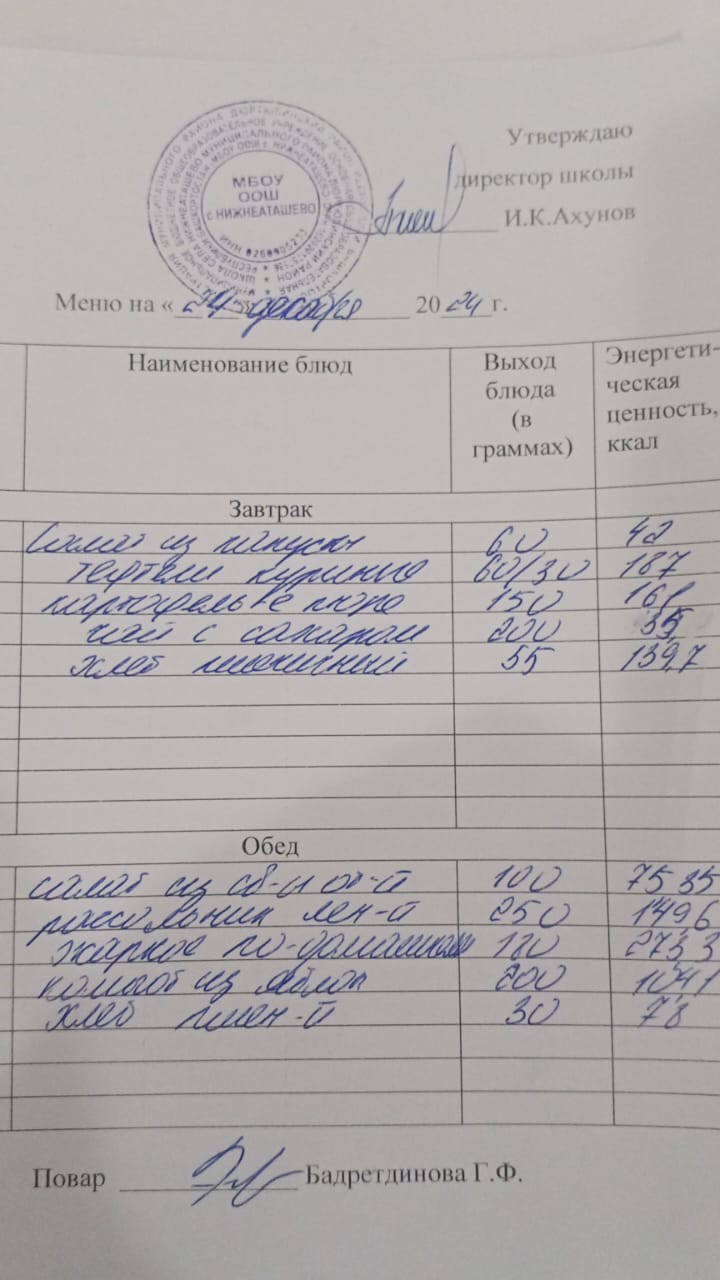 Утверждаю
директор школы
И.К.Ахунов
МБОУ
ООШ
с НИЖНЕАТАШЕВО
Меню на « 24 » декабря 2024 г.
Наименование блюд Выход блюда (в граммах) Энергети-ческая ценность, ккал
Завтрак
Салат из капусты 60 42
тефтели куриные 60/30 187
картофель-е пюре 150 161
чай с сахаром 200 35
хлеб пшеничный 55 139,7
Обед
салат из св-ы ов-й 100 75 85
рассольник лен-й 250 149,6
жаркое по-домашнему 180 273,3
компот из яблок 200 104,1
хлеб пшен-й 30 78
Повар Бадретдинова Г.Ф.